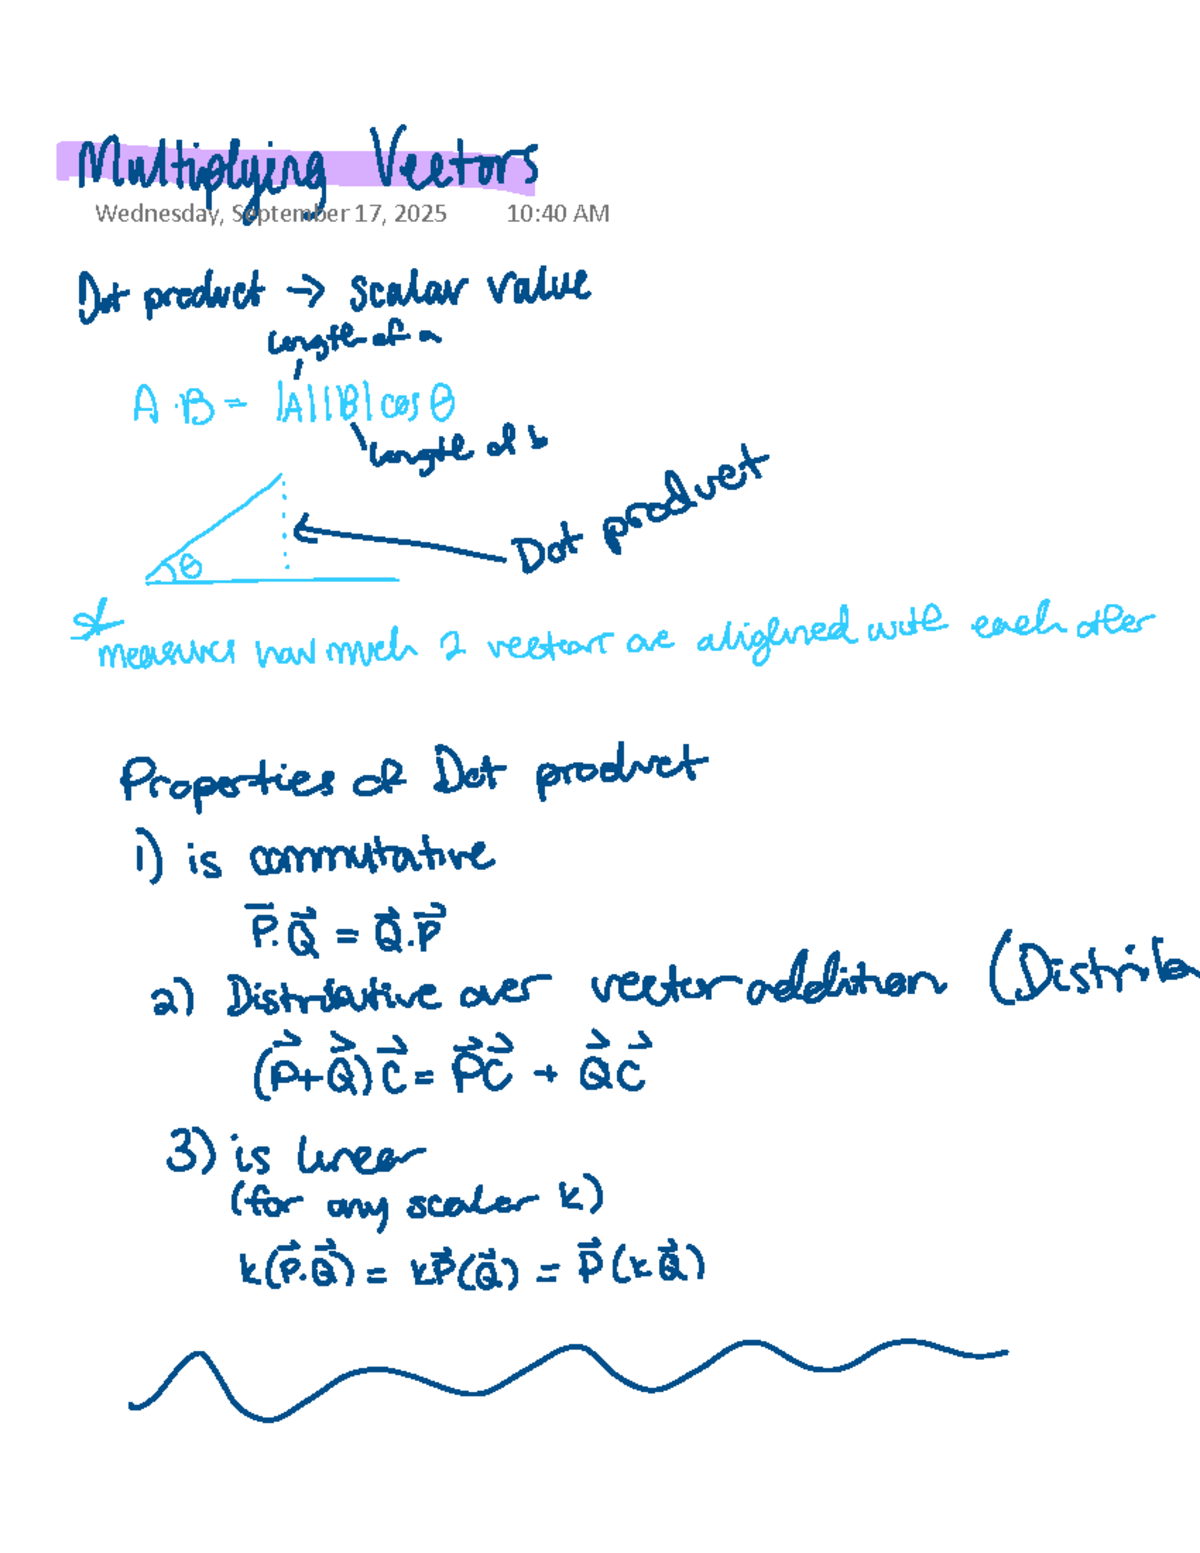 Multiplying Vectors
Wednesday, September 17, 2025 10:40 AM
Dot product → scalar value
length of a
A · B = |A||B| cos θ
length of b
Dot product
θ
* measures how much 2 vectors are aligined with each other
Properties of Dot product
1) is commutative
P⃗·Q⃗ = Q⃗·P⃗
2) Distributive over vector addition (Distribu
(P⃗+Q⃗)C⃗ = P⃗C⃗ + Q⃗C⃗
3) is linear
(for any scalar k)
k(P⃗·Q⃗) = kP⃗(Q⃗) = P⃗(kQ⃗)